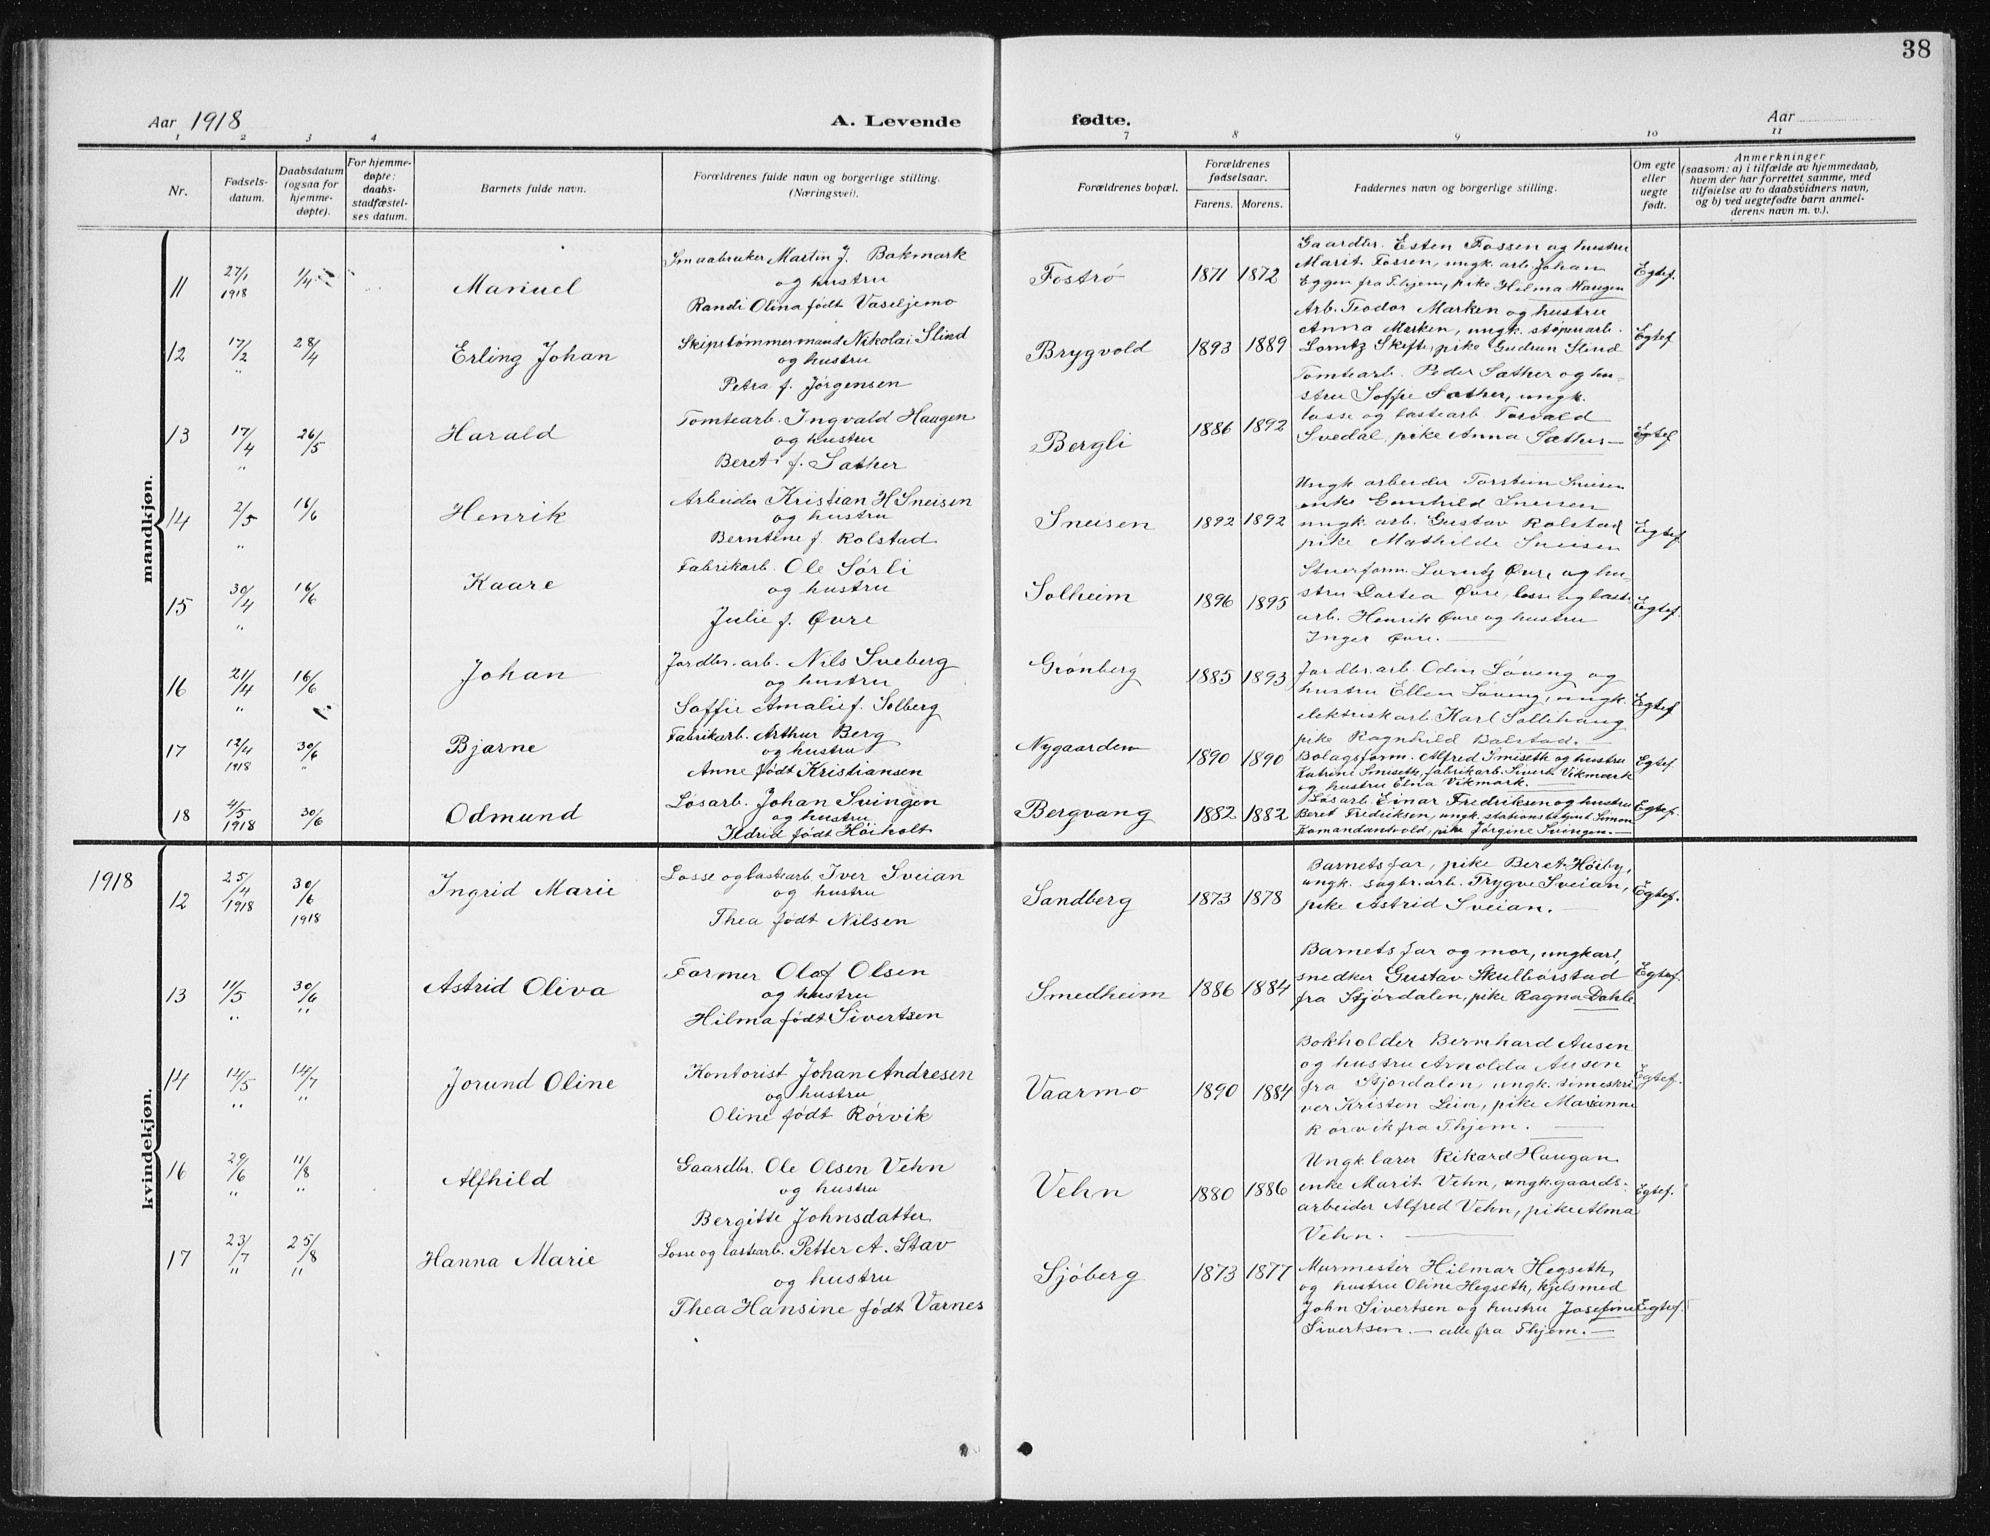 38
Aar 1918
A. Levende fødte.
Aar
1 2 3 4 7 8 9 10 11
Nr.
Fødsels-
datum.
Daabsdatum
(ogsaa for
hjemme-
døpte).
For hjemme-
døpte:
daabs-
stadfæstel-
ses datum.
Barnets fulde navn.
Forældrenes fulde navn og borgerlige stilling.
(Næringsvei).
Forældrenes bopæl.
Forældrenes
fødselsaar.
Farens. Morens.
Faddernes navn og borgerlige stilling.
Om egte
eller
uegte
født.
Anmerkninger
(saasom: a) i tilfælde av hjemmedaab,
hvem der har forrettet samme, med
tilføielse av to daabsvidners navn,
og b) ved uegtefødte barn anmel-
derens navn m. v.).
mandkjøn.
11 27/1 1918 1/4 Manuel
Smaabruker Martin J. Bakmark
og hustru
Randi Olina født Vaseljemo
Fostrø 1871 1872
Gaardbr. Esten Fossen og hustru
Marit Fossen, ungk. arb. Johan
Eggen fra Thjem, pike Hilma Haugen
Egtef.
12 17/2 " 28/4 Erling Johan
Skipstømmermand Nikolai Slind
og hustru
Petra f. Jørgensen
Brygvold 1893 1889
Arb. Teodor Marken og hustru
Anna Marken, ungk. støperiarb.
Lorntz Skifte, pike Gudrun Slind
Egtef
13 17/4 " 26/5 Harald
Tomtearb. Ingvald Haugen
og hustru
Beret f. Sæther
Bergli 1886 1892
Tomtearb. Peder Sæther og hu-
stru Soffie Sæther, ungk.
losse og lastearb Torvald
Svedal, pike Anna Sæther —
Egtef
14 2/5 " 16/6 Henrik
Arbeider Kristian H Sneisen
og hustru
Berntine f. Rolstad
Sneisen 1892 1892
Ungk arbeider Torstein Sneisen
enke Gunhild Sneisen
ungk. arb. Gustav Rolstad
pike Mathilde Sneisen
Egtef
15 30/4 " 16/6 Kaare
Fabrikarb. Ole Sørli
og hustru
Julie f. Øvre
Solheim 1896 1895
Stuerform. Lorntz Øvre og hu-
stru Dortea Øvre, losse og last.
arb. Henrik Øvre og hustru
Inger Øvre. —
Egtef.
16 21/4 " 16/6 Johan
Jordbr. arb. Nils Sveberg
og hustru
Soffie Amalie f. Solberg
Grønberg 1885 1893
Jordbr. arb Odin Løveng og
hustru Ellen Løveng, ungk.
elektriskarb. Karl Sollihaug
pike Ragnhild Balstad. —
Egtef
17 12/4 1918 30/6 " Bjarne
Fabrikarb. Arthur Berg
og hustru
Anne født Kristiansen
Nygaarden 1890 1890
Bolagsform. Alfred Smiseth og hustru
Katrine Smiseth, fabrikarb. Sivert Vikmark
og hustru Elna Vikmark.
Egtef.
18 4/5 1918 30/6 Odmund
Løsarb. Johan Svingen
og hustru
Ildrid født Høiholt
Bergvang 1882 1882
Løsarb. Einar Fredriksen og hustru
Beret Fredriksen, ungk. stationsbetjent Simon
Komandantvold, pike Jørgine Svingen. —
Egtef.
1918
kvindekjøn.
12 25/4 1918 30/6 1918 Ingrid Marie
Losse og lastearb Iver Sveian
og hustru
Thea født Nilsen
Sandberg 1873 1878
Barnets far, pike Beret Høiby,
ungk. sagbr. arb. Trygve Sveian,
pike Astrid Sveian. —
Egtef.
13 11/5 " 30/6 " Astrid Oliva
Former Olaf Olsen
og hustru
Hilma født Sivertsen
Smedheim 1886 1884
Barnets far og mor, ungkarl,
snedker Gustav Skulbørstad
fra Stjørdalen, pike Ragna Dahle
Egtef.
14 14/5 " 14/7 " Jorund Oline
Kontorist Johan Andresen
og hustru
Oline født Rørvik
Vaarmo 1890 1884
Bokholder Bernhard Ausen
og hustru Arnolda Ausen
fra Stjørdalen, ungk. timeskri
ver Kristen Lein, pike Marianne
Rørvik fra Thjem. —
Egtef.
16 29/6 " 11/8 " Alfhild
Gaardbr. Ole Olsen Vehn
og hustru
Bergitte Johnsdatter
Vehn 1880 1886
Ungk. lærer Rikard Haugan
enke Marit Vehn, ungk. gaards-
arbeider Alfred Vehn, pike Alma
Vehn. —
Egtef.
17 23/7 " 25/8 " Hanna Marie
Losse og lastearb. Petter A. Stav
og hustru
Thea Hansine født Varnes
Sjøberg 1873 1877
Murmester Hilmar Hegseth,
og hustru Oline Hegseth, kjelsmed
John Sivertsen og hustru Josefine
Sivertsen. — alle fra Thjem. —
Egtef.